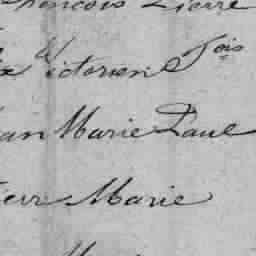 francois Pierre
Victorien fois
an Marie Paul
ierr Marie